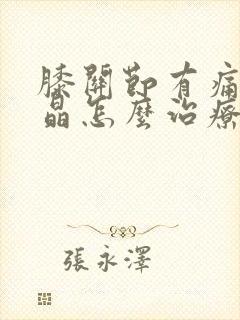 膝關節有痛
晶怎麼治療
張永澤